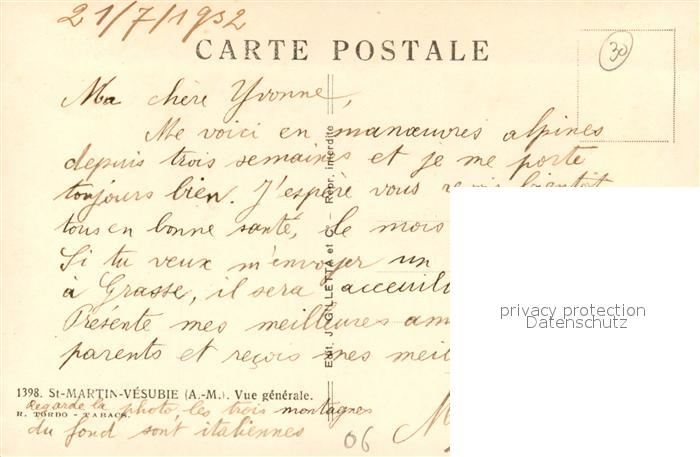 21/7/1932
CARTE POSTALE
30
Ma chère Yvonne,
Me voici en manœuvres alpines
depuis trois semaines et je me porte
toujours bien. J'espère vous bientôt
tous en bonne santé, le mois
Si tu veux m'envoyer un
à Grasse, il sera acceuilli
Présente mes meilleures
parents et reçois mes
Edit. J. GILLETTA et C. - Repr. interdite
privacy protection
Datenschutz
1398. St-MARTIN-VÉSUBIE (A.-M.). Vue générale.
Regarde la photo, les trois montagnes
R. TORDO - TABACS.
du fond sont italiennes
06